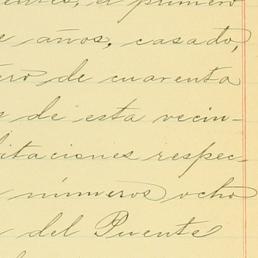 primero
años, casado,
de cuarenta
de esta vecin-
itaciones respec-
números ocho
del Puente